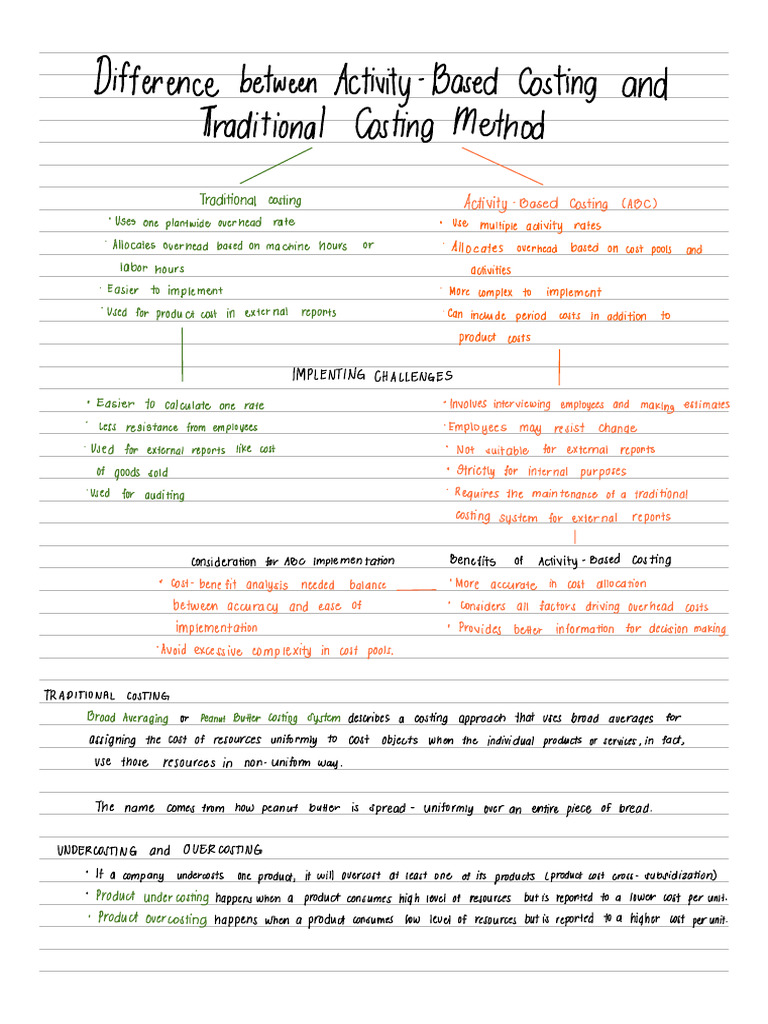 Difference between Activity-Based Costing and
Traditional Costing Method
Traditional costing
• Uses one plantwide overhead rate
• Allocates overhead based on machine hours or
labor hours
• Easier to implement
• Used for product cost in external reports
Activity-Based Costing (ABC)
• Use multiple activity rates
• Allocates overhead based on cost pools and
activities
• More complex to implement
• Can include period costs in addition to
product costs
IMPLENTING CHALLENGES
• Easier to calculate one rate
• Less resistance from employees
• Used for external reports like cost
of goods sold
• Used for auditing
• Involves interviewing employees and making estimates
• Employees may resist change
• Not suitable for external reports
• Strictly for internal purposes
• Requires the maintenance of a traditional
costing system for external reports
Consideration for ABC Implementation
• Cost-benefit analysis needed balance
between accuracy and ease of
implementation
• Avoid excessive complexity in cost pools.
Benefits of Activity-Based Costing
• More accurate in cost allocation
• Considers all factors driving overhead costs
• Provides better information for decision making
TRADITIONAL COSTING
Broad Averaging or Peanut Butter Costing System describes a costing approach that uses broad averages for
assigning the cost of resources uniformly to cost objects when the individual products or services, in fact,
use those resources in non-uniform way.
The name comes from how peanut butter is spread - uniformly over an entire piece of bread.
UNDERCOSTING and OVERCOSTING
• If a company undercosts one product, it will overcost at least one of its products (product cost cross-subsidization)
• Product undercosting happens when a product consumes high level of resources but is reported to a lower cost per unit.
• Product overcosting happens when a product consumes low level of resources but is reported to a higher cost per unit.